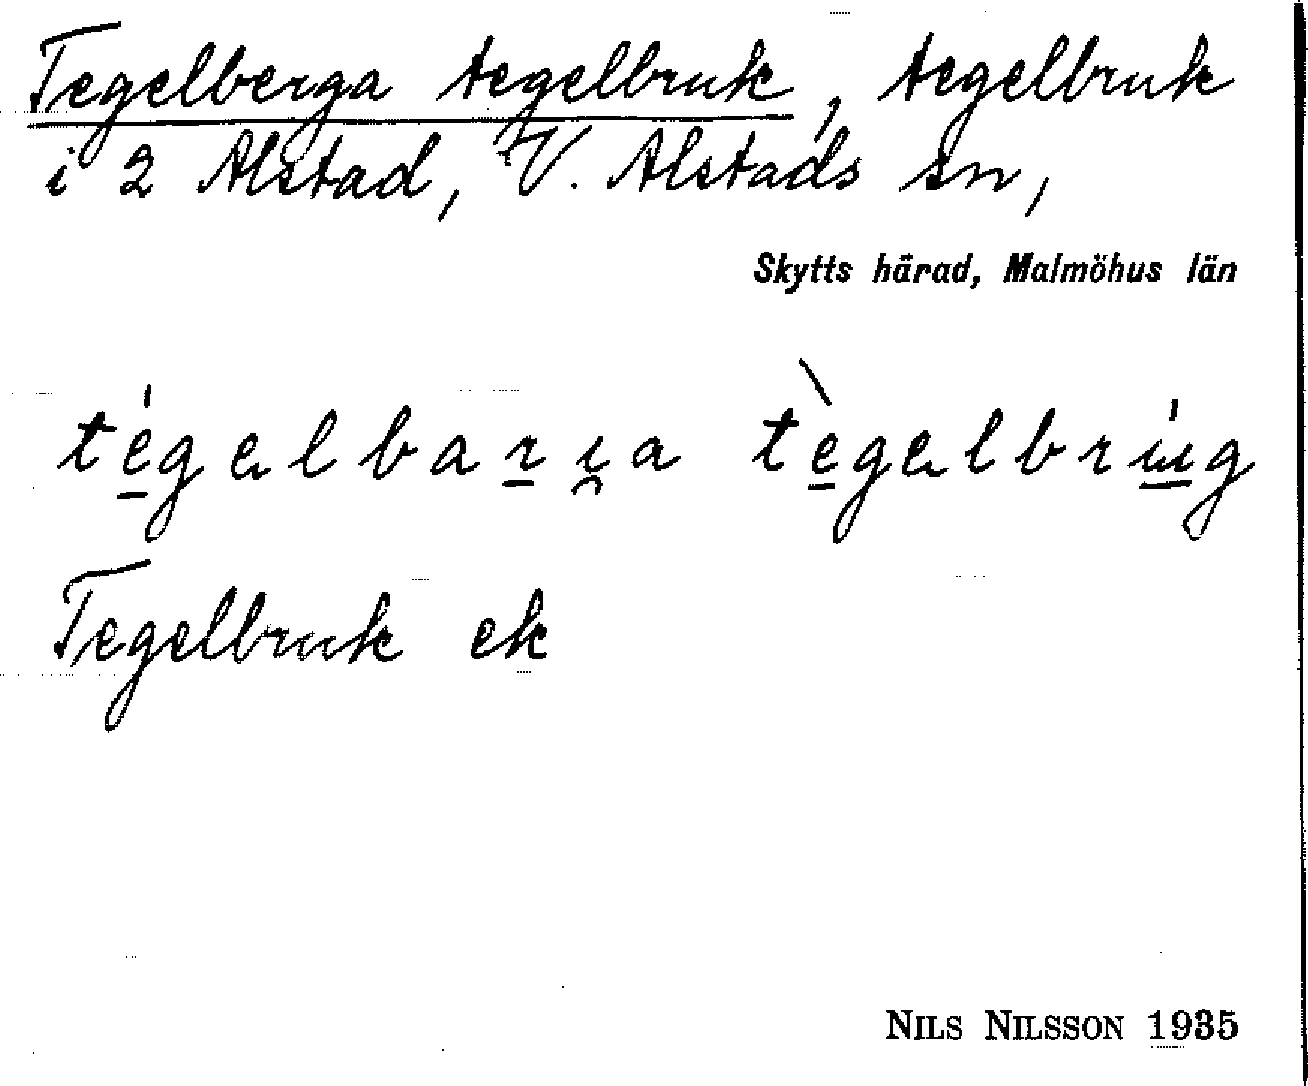 Tegelberga tegelbruk, tegelbruk
i 2 Alstad, V. Alstads sn,
Skytts härad, Malmöhus län
tégelbarı̯a tègelbrúg
Tegelbruk ek
NILS NILSSON 1935